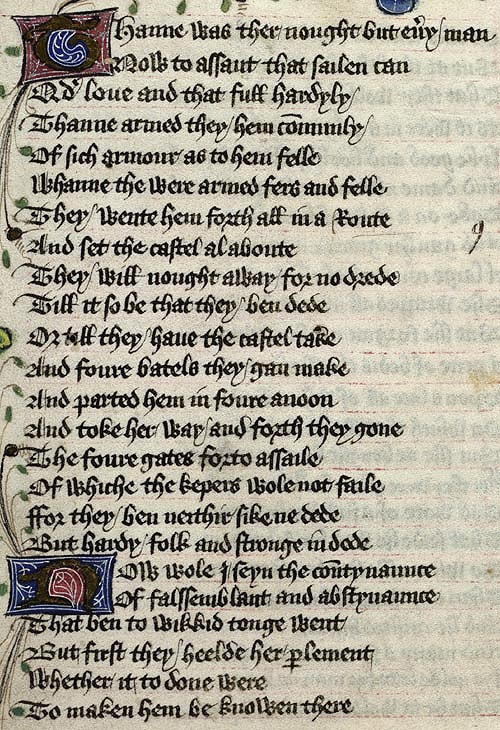 Thanne was ther nought but eūy man
Now to assaut that sailen can
Qd̄ loue and that full hardyly
Thanne armed they hem cōmunly
Of sich armour as to hem felle
Whanne the were armed fers and felle
They wente hem forth all in a Route
And set the castel al aboute
They will nought away for no drede
Till it so be that they ben dede
Or till they haue the castel take
And foure batels they gan make
And parted hem in foure anoon
And toke her way and forth they gone
The foure gates forto assaile
Of whiche the kepers wole not faile
ffor they ben neithir sike ne dede
But hardy folk and stronge in dede
Now wole I seyn the coūtynaunce
Of falssemblant and abstynaunce
That ben to wikkid tonge went
But first they heelde her ꝑlement
Whether it to done were
To maken hem be knowen there